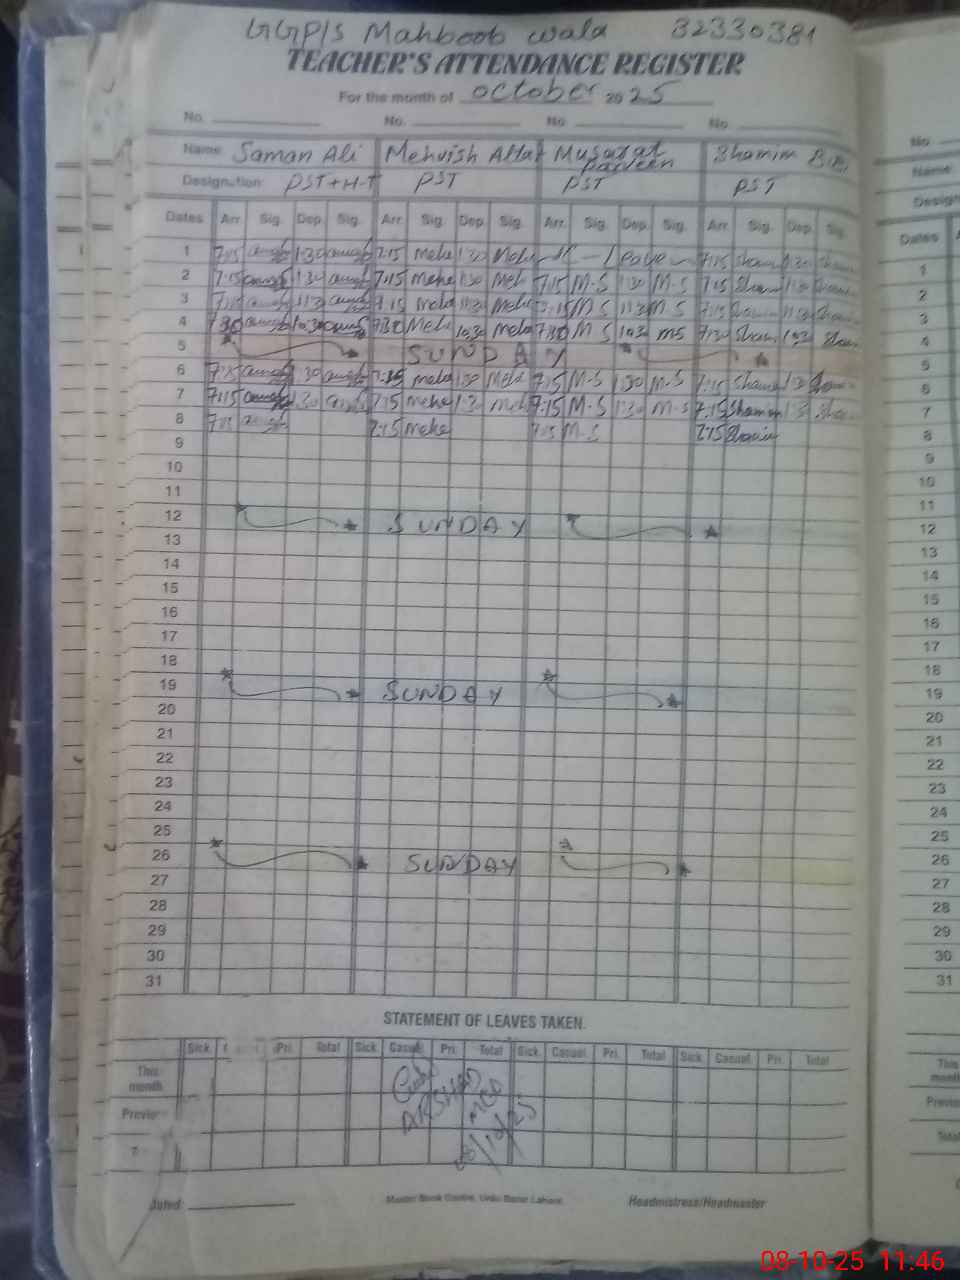 GGP/S Mahboob wala 32330381
TEACHER'S ATTENDANCE REGISTER
For the month of October 2025
No. No. No. No.
Name: Saman Ali Mehvish Altaf Musarat Parveen Shamim BiBi
Designation: PST+H-T PST PST PST
Dates Arr. Sig. Dep. Sig. Arr. Sig. Dep. Sig. Arr. Sig. Dep. Sig. Arr. Sig. Dep. Sig.
1 7:15 1:30 7:15 mehe 1:30 Meh Leave 7:15 Sham 1:30 Sham
2 7:15 1:30 7:15 mehe 1:30 Meh 7:15 M.S 1:30 M.S 7:15 Sham 1:30
3 7:15 11:30 7:15 mehe 11:30 Mehe 7:15 M S 11:30 M S 7:15 11:30
4 7:30 10:30 7:30 Mehe 10:30 mehe 7:30 M S 10:30 MS 7:30 Sham 10:30 Sham
5 SUNDAY
6 7:15 1:30 7:15 mehe 1:30 Mehe 7:15 M.S 1:30 M.S 7:15 Sham 1:30
7 7:15 1:30 7:15 mehe 1:30 meh 7:15 M.S 1:30 M.S 7:15 Shamim 1:30
8 7:15 7:15 mehe 7:15 M.S 7:15 Shamim
9
10
11
12 SUNDAY
13
14
15
16
17
18
19 SUNDAY
20
21
22
23
24
25
26 SUNDAY
27
28
29
30
31
STATEMENT OF LEAVES TAKEN.
Sick. Pri. Total Sick. Casual Pri. Total Sick. Casual. Pri. Total Sick. Casual. Pri. Total
This month
ARSHAD
MEO
08/10/25
Dated: Master Book Centre, Urdu Bazar Lahore. Headmistress/Headmaster
No.
Name:
Dates
1
2
3
4
5
6
7
8
9
10
11
12
13
14
15
16
17
18
19
20
21
22
23
24
25
26
27
28
29
30
31
This
month
Total
08-10-25 11:46